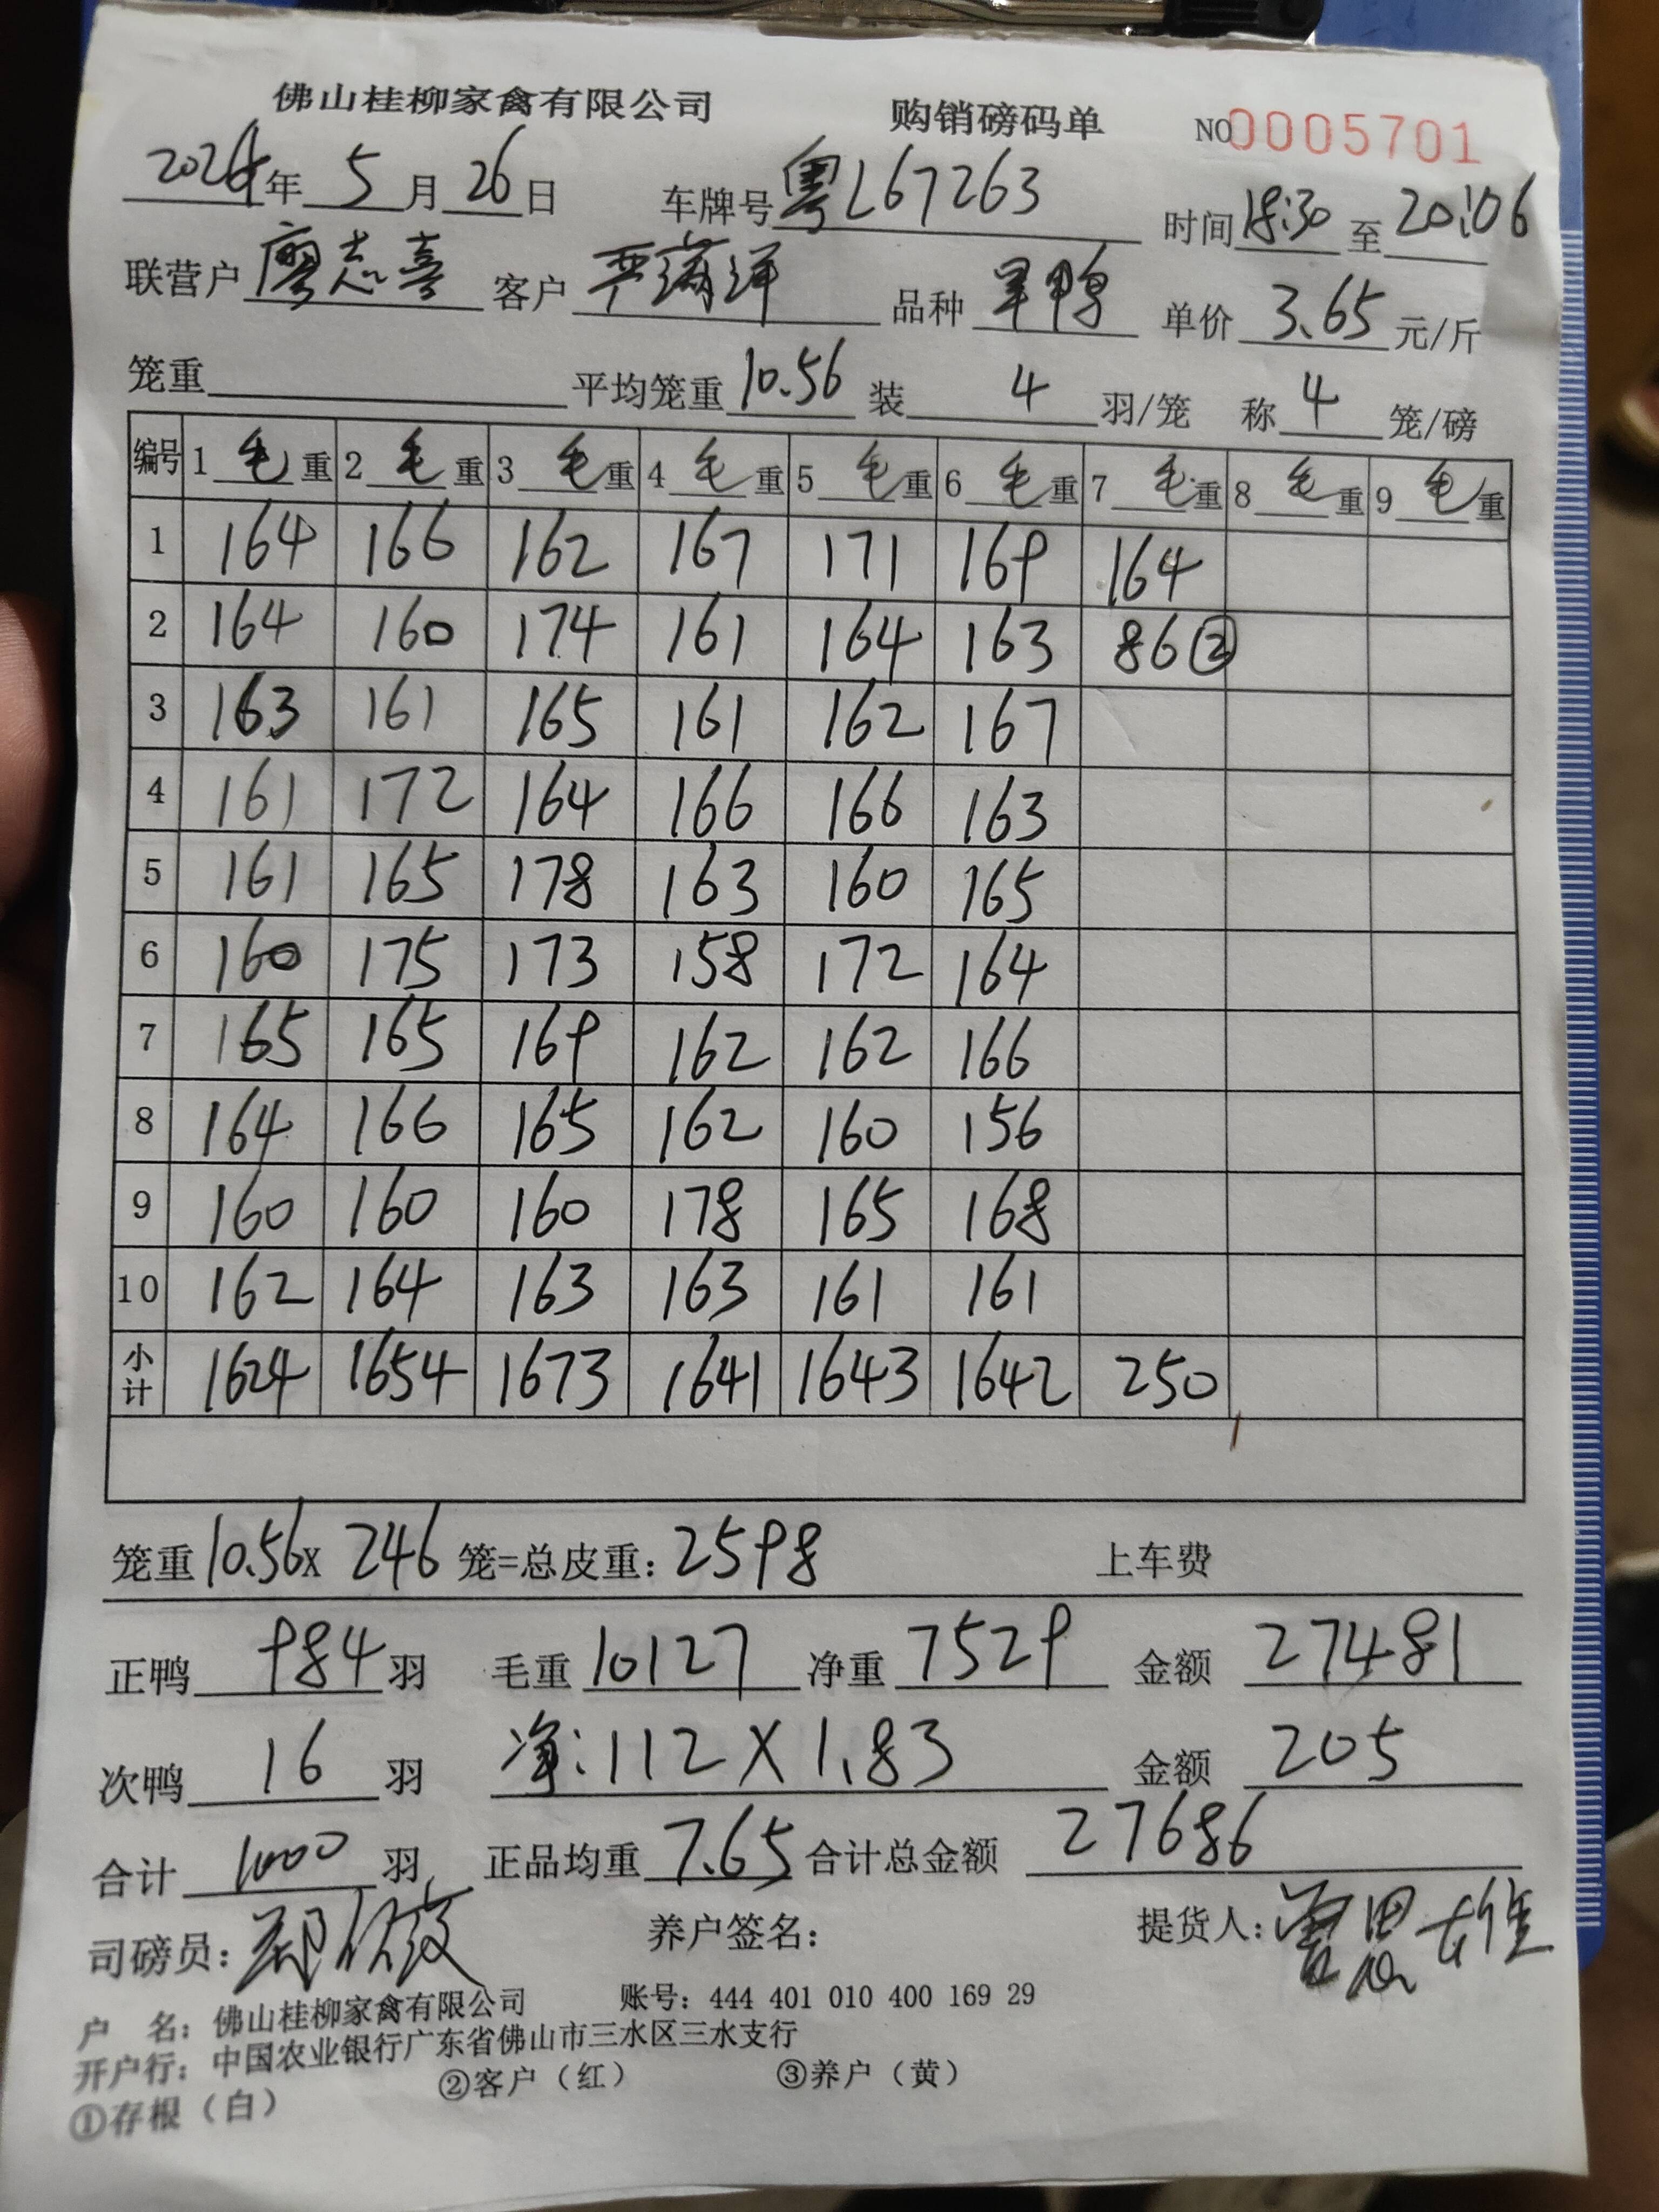 佛山桂柳家禽有限公司 购销磅码单 NO0005701
2024年 5 月 26 日 车牌号 粤L67263 时间 18:30 至 20:06
联营户 廖志喜 客户 严满洋 品种 单价 3.65 元/斤
笼重 平均笼重 10.56 装 4 羽/笼 称 4 笼/磅
编号 1 毛重 2 毛重 3 毛重 4 毛重 5 毛重 6 毛重 7 毛重 8 毛重 9 毛重
1 164 166 162 167 171 169 164
2 164 160 174 161 164 163 86②
3 163 161 165 161 162 167
4 161 172 164 166 166 163
5 161 165 178 163 160 165
6 160 175 173 158 172 164
7 165 165 169 162 162 166
8 164 166 165 162 160 156
9 160 160 160 178 165 168
10 162 164 163 163 161 161
小计 1624 1654 1673 1641 1643 1642 250
笼重 10.56x 246 笼=总皮重: 2598 上车费
正鸭 984 羽 毛重 10127 净重 7529 金额 27481
次鸭 16 羽 净:112X1.83 金额 205
合计 1000 羽 正品均重 7.65 合计总金额 27686
司磅员: 养户签名: 提货人:
户 名: 佛山桂柳家禽有限公司 账号: 444 401 010 400 169 29
开户行: 中国农业银行广东省佛山市三水区三水支行
①存根（白） ②客户（红） ③养户（黄）